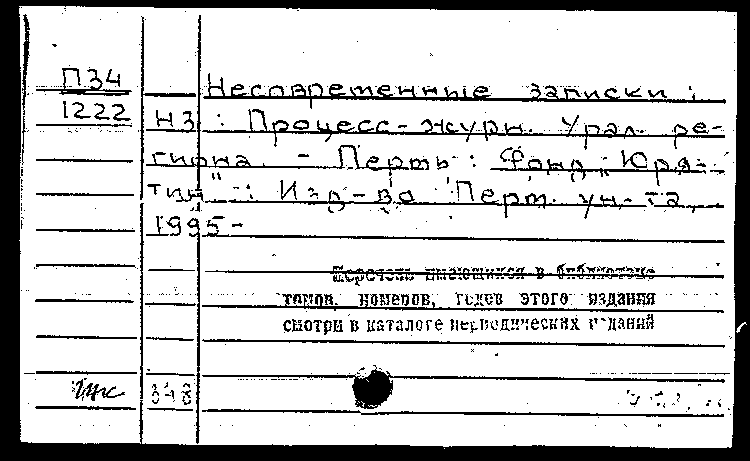 П34 Несовременные записки :
1222 НЗ : Процесс-журн. Урал. ре-
гиона. - Пермь : Фонд "Юря-
тин" : Изд-во Перм. ун-та,
1995-
Перечень имеющихся в библиотеке
томов, номеров, годов этого издания
смотри в каталоге периодических изданий
348